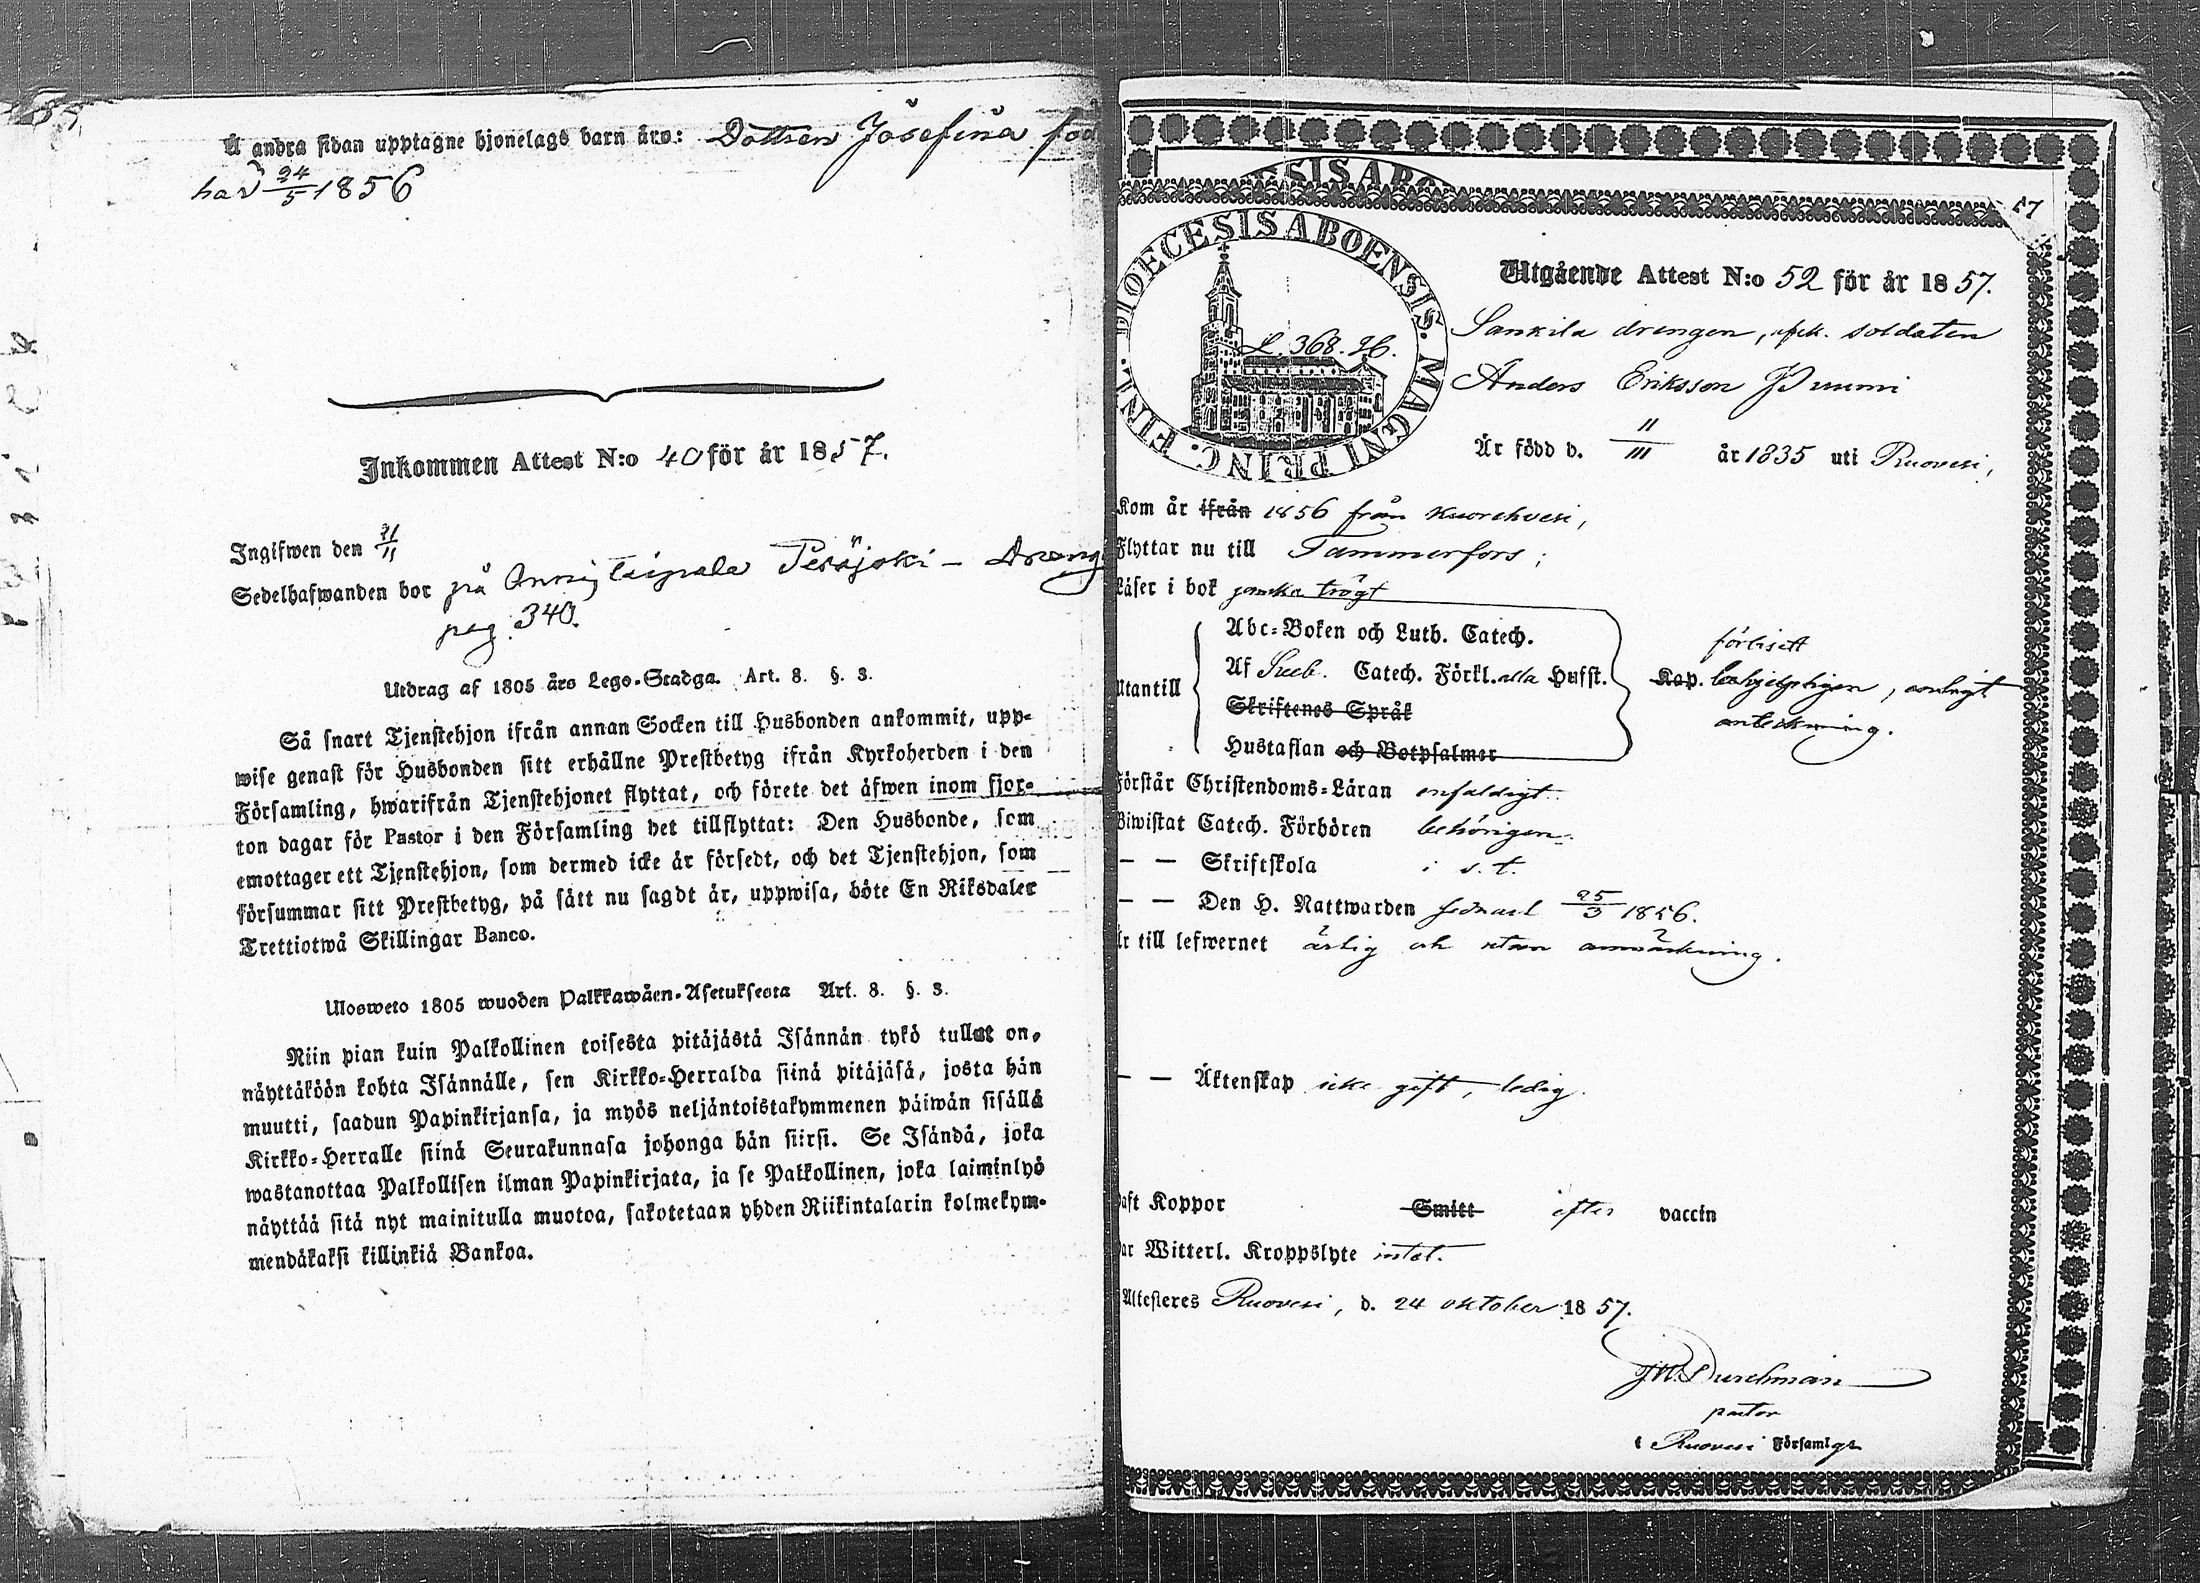 Å andra sidan upptagne hjonelags barn äro: Dottren Josefina föd
här 24/5 1856
Inkommen Attest N:o 40 för år 1857.
Ingifwen den 21/11
Sedelhafwanden bor på Pesäjoki - Dräng
pag. 340.
Utdrag af 1805 års Lego-Stadga. Art. 8. §. 3.
Så snart Tjenstehjon ifrån annan Socken till Husbonden ankommit, upp-
wise genast för Husbonden sitt erhållne Prestbetyg ifrån Kyrkoherden i den
Församling, hwarifrån Tjenstehjonet flyttat, och förete det äfwen inom fjor-
ton dagar för Pastor i den Församling det tillflyttat: Den Husbonde, som
emottager ett Tjenstehjon, som dermed icke är försedt, och det Tjenstehjon, som
försummar sitt Prestbetyg, på sätt nu sagdt är, uppwisa, böte En Riksdaler
Trettiotwå Skillingar Banco.
Ulosweto 1805 wuoden Palkkawäen-Asetuksesta Art. 8. §. 3.
Niin pian kuin Palkollinen toisesta pitäjästä Isännän tykö tullut on,
näyttäköön kohta Isännälle, sen Kirkko-Herralda siinä pitäjäsä, josta hän
muutti, saadun Papinkirjansa, ja myös neljäntoistakymmenen päiwän sisällä
Kirkko-Herralle siinä Seurakunnasa johonga hän siirsi. Se Isändä, joka
wastanottaa Palkollisen ilman Papinkirjata, ja se Palkollinen, joka laiminlyö
näyttää sitä nyt mainitulla muotoa, sakotetaan yhden Riikintalarin kolmekym-
mendäkaksi killinkiä Bankoa.
ESIS ABO
57
DIOECESIS ABOENSIS. MAGNI PRINC. FINL.
L. 368. 26.
Utgående Attest N:o 52 för år 1857.
Sankila drengen, afsk. soldaten
Anders Eriksson Pummi
Är född d. 11/III år 1835 uti Ruovesi,
Kom år ifrån 1856 från Kuorehvesi,
Flyttar nu till Tammerfors;
Läser i bok ganska trögt
Abc-Boken och Luth. Catech.
Af Sveb. Catech. Förkl. alla Hufst.
Utantill
Skriftenes Språk
Hustaflan och Botpsalmer
förlisett
Kap. behjelpligen, enligt
anteckning.
Förstår Christendoms-Läran enfaldigt.
Biwistat Catech. Förhören behörigen.
— — Skriftskola i s. t.
— — Den H. Nattwarden sednast 25/3 1856.
Är till lefwernet ärlig och utan anmärkning.
— — Äktenskap icke gift, ledig.
Haft Koppor Smitt efter vaccin
Har Witterl. Kroppslyte intet.
Attesteres Ruovesi, d. 24 oktober 1857.
J.W. Durchman
pastor
i Ruovesi Församlgr